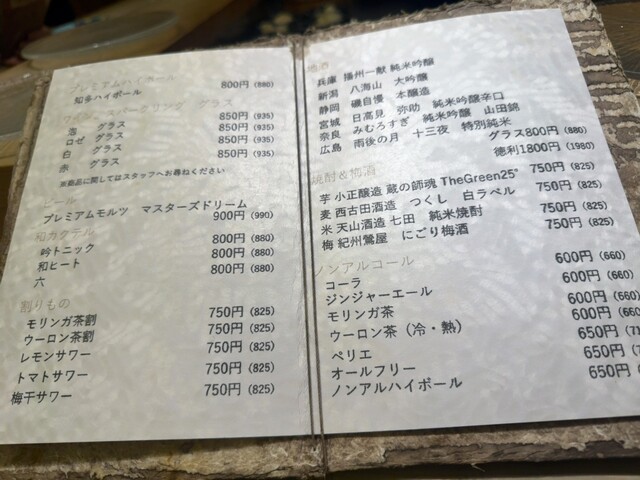 プレミアムハイボール
知多ハイボール 800円 (880)
ワイン、スパークリング グラス
泡 グラス 850円 (935)
ロゼ グラス 850円 (935)
白 グラス 850円 (935)
赤 グラス 850円 (935)
※銘品に関してはスタッフへお尋ねください
ビール
プレミアムモルツ マスターズドリーム
900円 (990)
和カクテル
吟トニック 800円 (880)
和ヒート 800円 (880)
六 800円 (880)
割りもの
モリンガ茶割 750円 (825)
ウーロン茶割 750円 (825)
レモンサワー 750円 (825)
トマトサワー 750円 (825)
梅干サワー 750円 (825)
地酒
兵庫 播州一献 純米吟醸
新潟 八海山 大吟醸
静岡 磯自慢 本醸造
宮城 日高見 弥助 純米吟醸辛口
奈良 みむろすぎ 純米吟醸 山田錦
広島 雨後の月 十三夜 特別純米
グラス800円 (880)
徳利1800円 (1980)
焼酎&梅酒
芋 小正醸造 蔵の師魂 TheGreen25° 750円 (825)
麦 西古田酒造 つくし 白ラベル 750円 (825)
米 天山酒造 七田 純米焼酎 750円 (825)
梅 紀州鶯屋 にごり梅酒 750円 (825)
ノンアルコール
コーラ 600円 (660)
ジンジャーエール 600円 (660)
モリンガ茶 600円 (660)
ウーロン茶 (冷・熱) 600円 (660)
ペリエ 650円
オールフリー 650円
ノンアルハイボール 650円